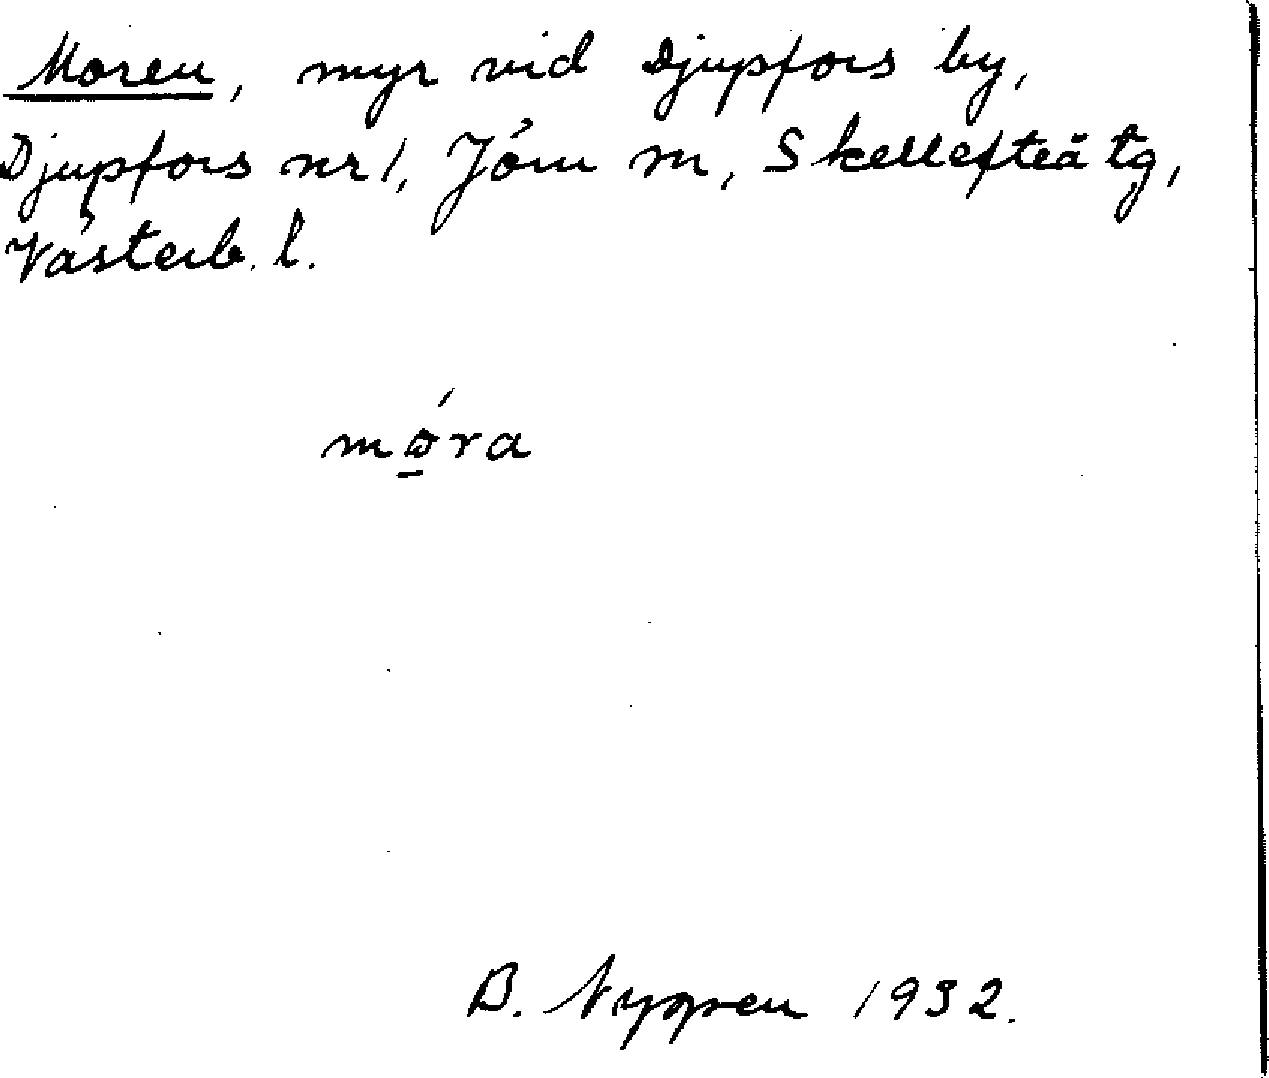 Moren, myr vid Djupfors by,
Djupfors nr 1, Jörn sn, Skellefteå tg,
Västerb. l.
mǫ́ra
B. Nygren 1932.